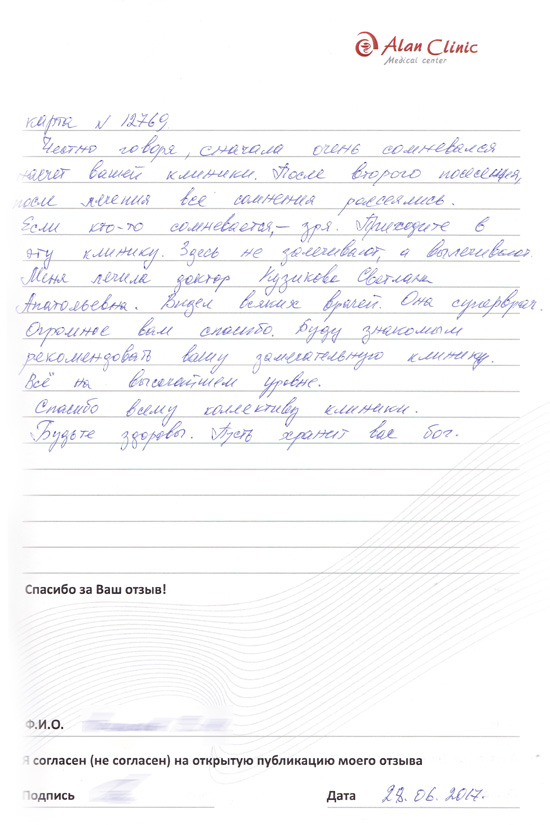 Alan Clinic
Medical center
карта N 12769.
Честно говоря, сначала очень сомневался
насчет вашей клиники. После второго посещения,
после лечения все сомнения рассеялись.
Если кто-то сомневается, – зря. Приходите в
эту клинику. Здесь не залечивают, а вылечивают.
Меня лечила доктор Кузикова Светлана
Анатольевна. Видел всяких врачей. Она супервраач.
Огромное вам спасибо. Буду знакомым
рекомендовать вашу замечательную клинику.
Всё на высочайшем уровне.
Спасибо всему коллективу клиники.
Будьте здоровы. Пусть хранит вас бог.
Спасибо за Ваш отзыв!
Ф.И.О.
Я согласен (не согласен) на открытую публикацию моего отзыва
Подпись
Дата 28.06.2017.